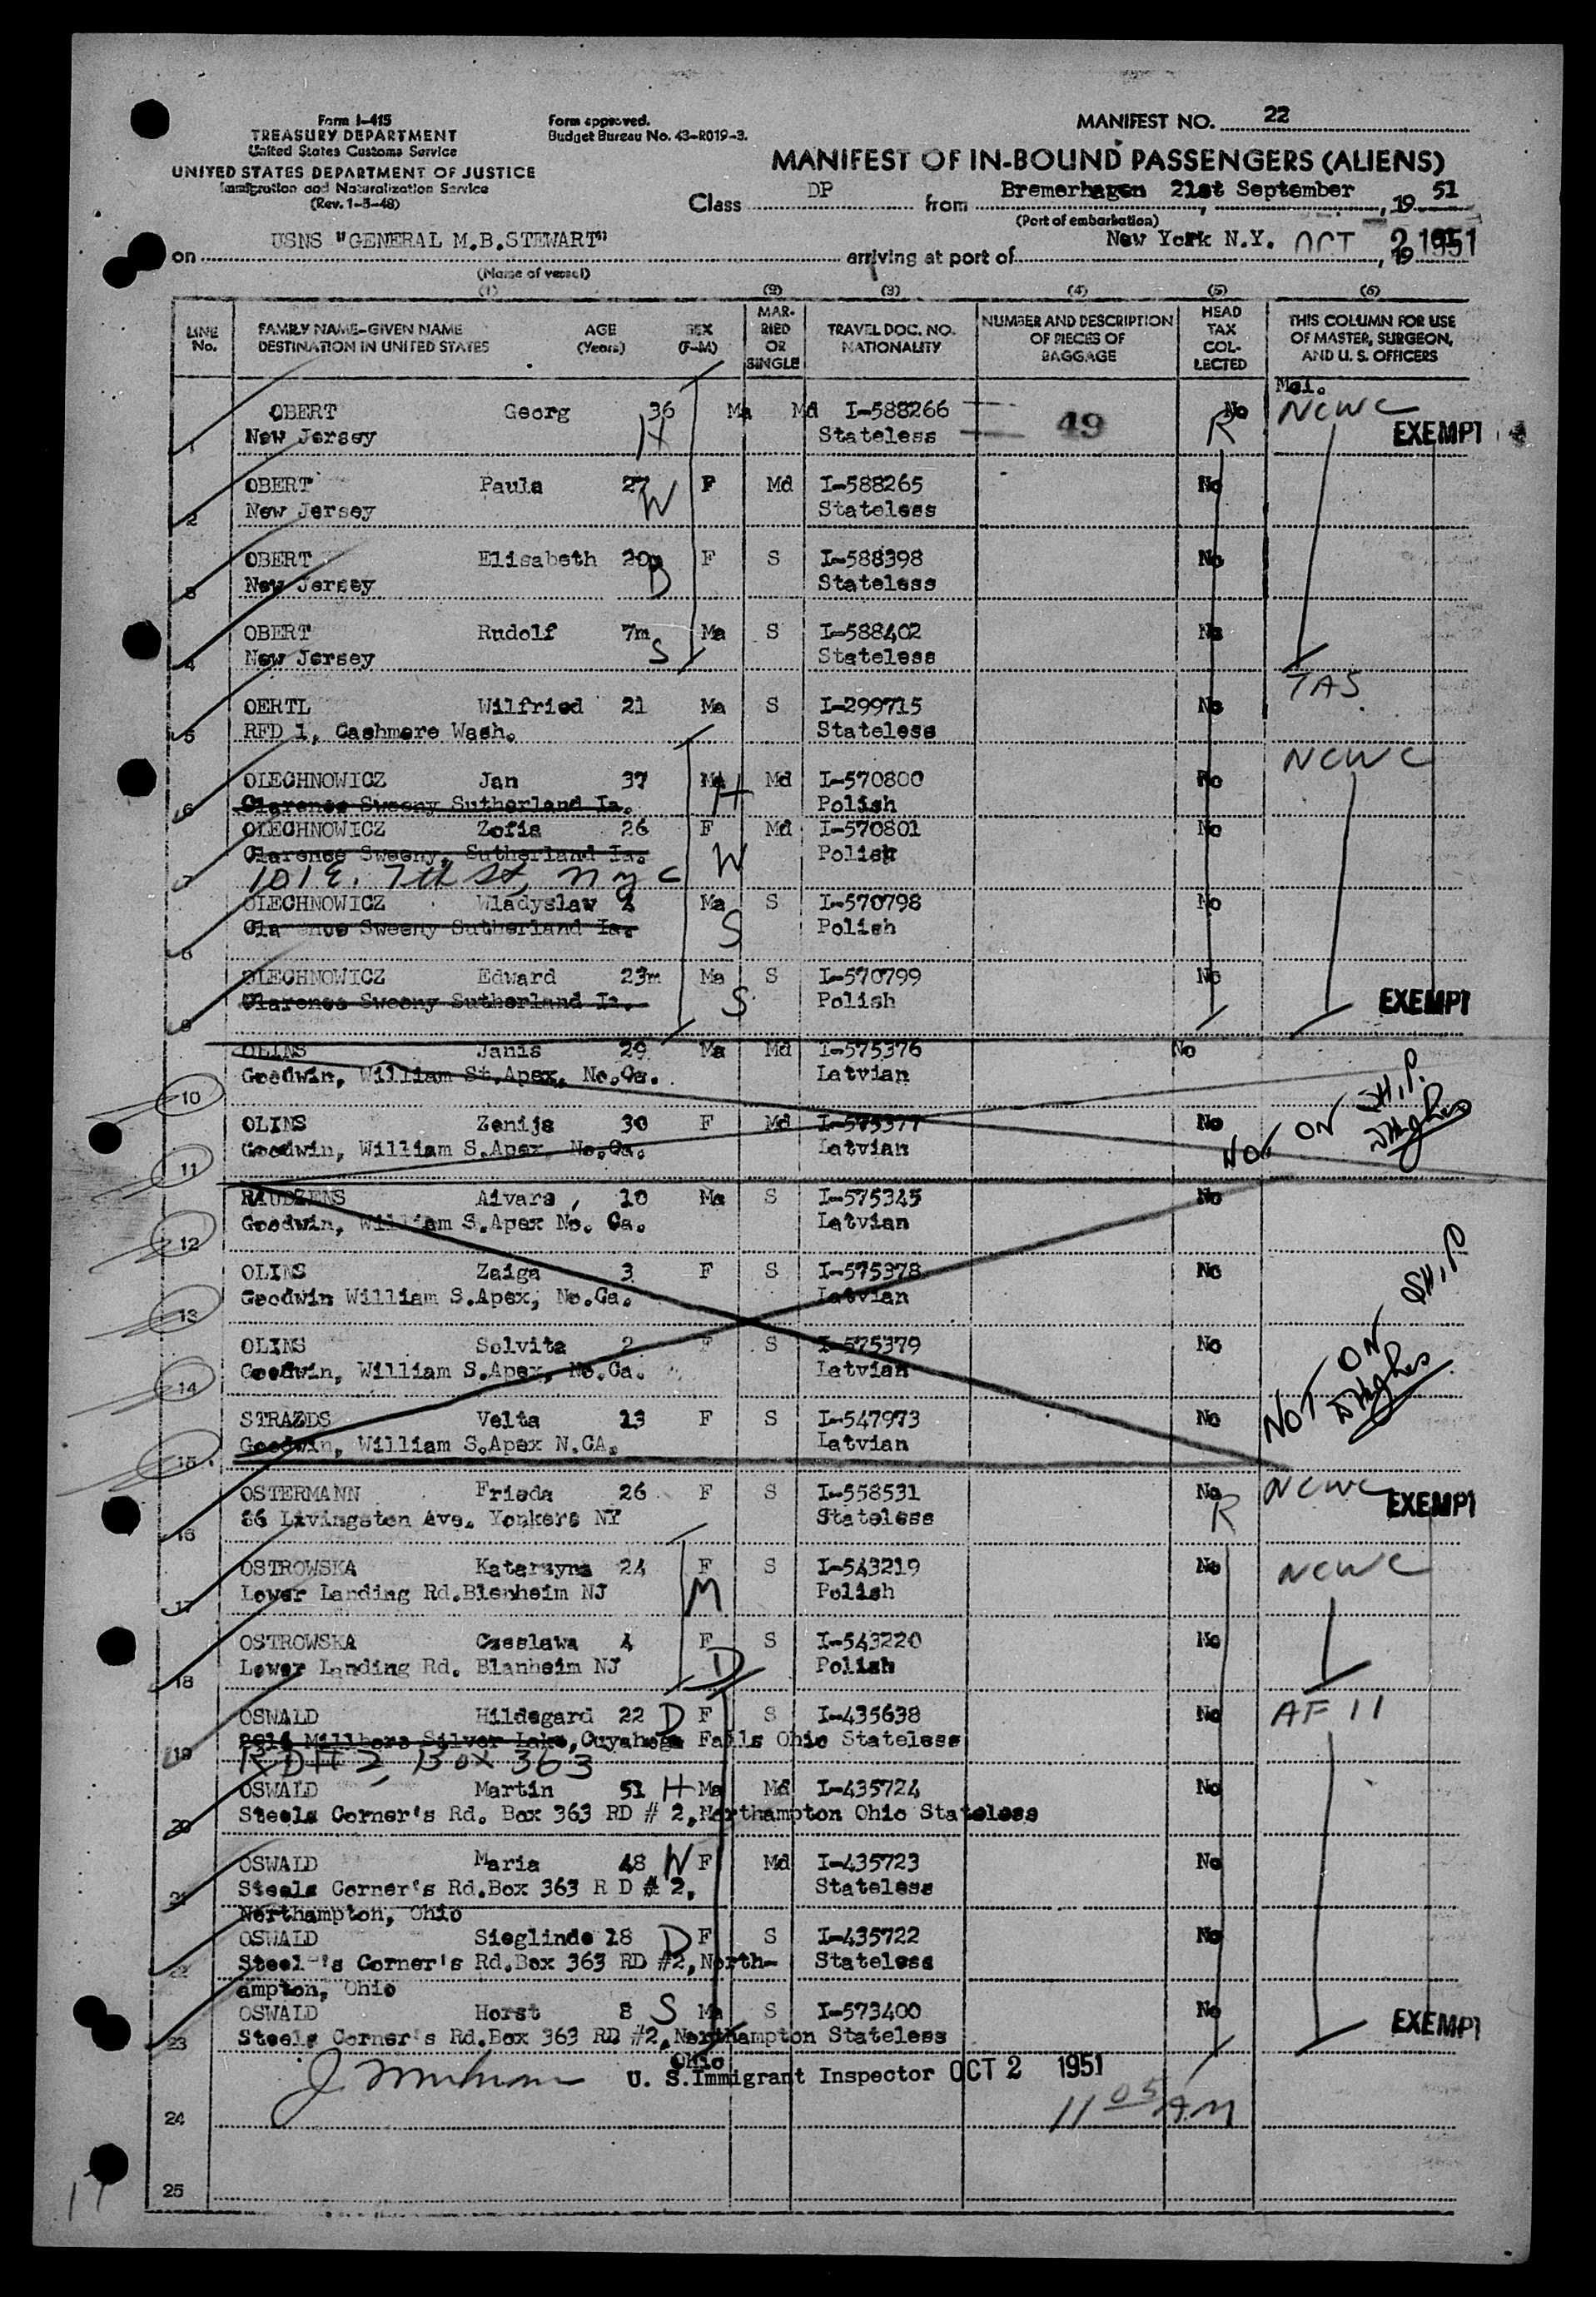 Form I-415
TREASURY DEPARTMENT
United States Customs Service
UNITED STATES DEPARTMENT OF JUSTICE
Immigration and Naturalization Service
(Rev. 1-5-48)
Form approved.
Budget Bureau No. 43-R019-3.
MANIFEST NO. 22
MANIFEST OF IN-BOUND PASSENGERS (ALIENS)
Class DP from Bremerhagen 21st September, 19 51
(Port of embarkation)
on USNS "GENERAL M.B.STEWART" arriving at port of New York N.Y. OCT 2 1951, 19
(Name of vessel)
(1) (2) (3) (4) (5) (6)
LINE No. FAMILY NAME-GIVEN NAME DESTINATION IN UNITED STATES AGE (Years) SEX (F-M) MAR- RIED OR SINGLE TRAVEL DOC. NO. NATIONALITY NUMBER AND DESCRIPTION OF PIECES OF BAGGAGE HEAD TAX COL- LECTED THIS COLUMN FOR USE OF MASTER, SURGEON, AND U. S. OFFICERS
OBERT Georg 36 Ma Md I-588266 No NCWC
1 New Jersey H Stateless 49 R EXEMPT
OBERT Paula 27 W F Md I-588265 No
2 New Jersey Stateless
OBERT Elisabeth 20m D F S I-588398 No
3 New Jersey Stateless
OBERT Rudolf 7m S Ma S I-588402 No
4 New Jersey Stateless
OERTL Wilfried 21 Ma S I-299715 No TAS
5 RFD 1, Cashmere Wash. Stateless
OLECHNOWICZ Jan 37 Ma H Md I-570800 No NCWC
6 Clarence Sweeny Sutherland Ia. Polish
OLECHNOWICZ Zofia 26 F Md I-570801 No
Clarence Sweeny, Sutherland Ia. W Polish
7 101 E. 7th St, NYC
OLECHNOWICZ Wladyslaw Ma S I-570798 No
8 Clarence Sweeny Sutherland Ia. S Polish
OLECHNOWICZ Edward 23m Ma S I-570799 No
9 Clarence Sweeny Sutherland Ia. S Polish EXEMPT
OLINS Janis 29 Ma Md I-575376 No
10 Goodwin, William St.Apex, No.Ca. Latvian
OLINS Zenija 30 F Md I-575377 No NOT ON SHIP
11 Goodwin, William S.Apex, No.Ca. Latvian
RAUDZENS Aivars, 10 Ma S I-575345 No
12 Goodwin, William S.Apex No. Ca. Latvian
OLINS Zaiga 3 F S I-575378 No
13 Goodwin William S.Apex, No.Ca. Latvian
OLINS Solvita 2 F S I-575379 No NOT ON SHIP
14 Goodwin, William S.Apex, No.Ca. Latvian
STRAZDS Velta 13 F S I-547973 No
15 Goodwin, William S.Apex N.CA. Latvian
OSTERMANN Frieda 26 F S I-558531 No NCWC EXEMPT
16 86 Livingston Ave. Yonkers NY Stateless R
OSTROWSKA Katarzyna 24 F S I-543219 No NCWC
17 Lower Landing Rd.Blenheim NJ M Polish
OSTROWSKA Czeslawa 4 F S I-543220 No
18 Lower Landing Rd. Blanheim NJ D Polish
OSWALD Hildegard 22 D F S I-435638 No AF 11
Millbors Silver Lake, Cuyahoga Falls Ohio Stateless
19 RD # 2, Box 363
OSWALD Martin 51 H Ma Md I-435724 No
20 Steels Corner's Rd. Box 363 RD # 2, Northampton Ohio Stateless
OSWALD Maria 48 W F Md I-435723 No
21 Steels Corner's Rd.Box 363 R D # 2, Stateless
Northampton, Ohio
OSWALD Sieglinde 18 D F S I-435722 No
22 Steel-'s Corner's Rd.Box 363 RD #2, North- Stateless
ampton, Ohio
OSWALD Horst 8 S Ma S I-573400 No
23 Steels Corner's Rd.Box 363 RD #2, Northampton Stateless EXEMPT
Ohio
U. S.Immigrant Inspector OCT 2 1951
24 11 05 AM
25